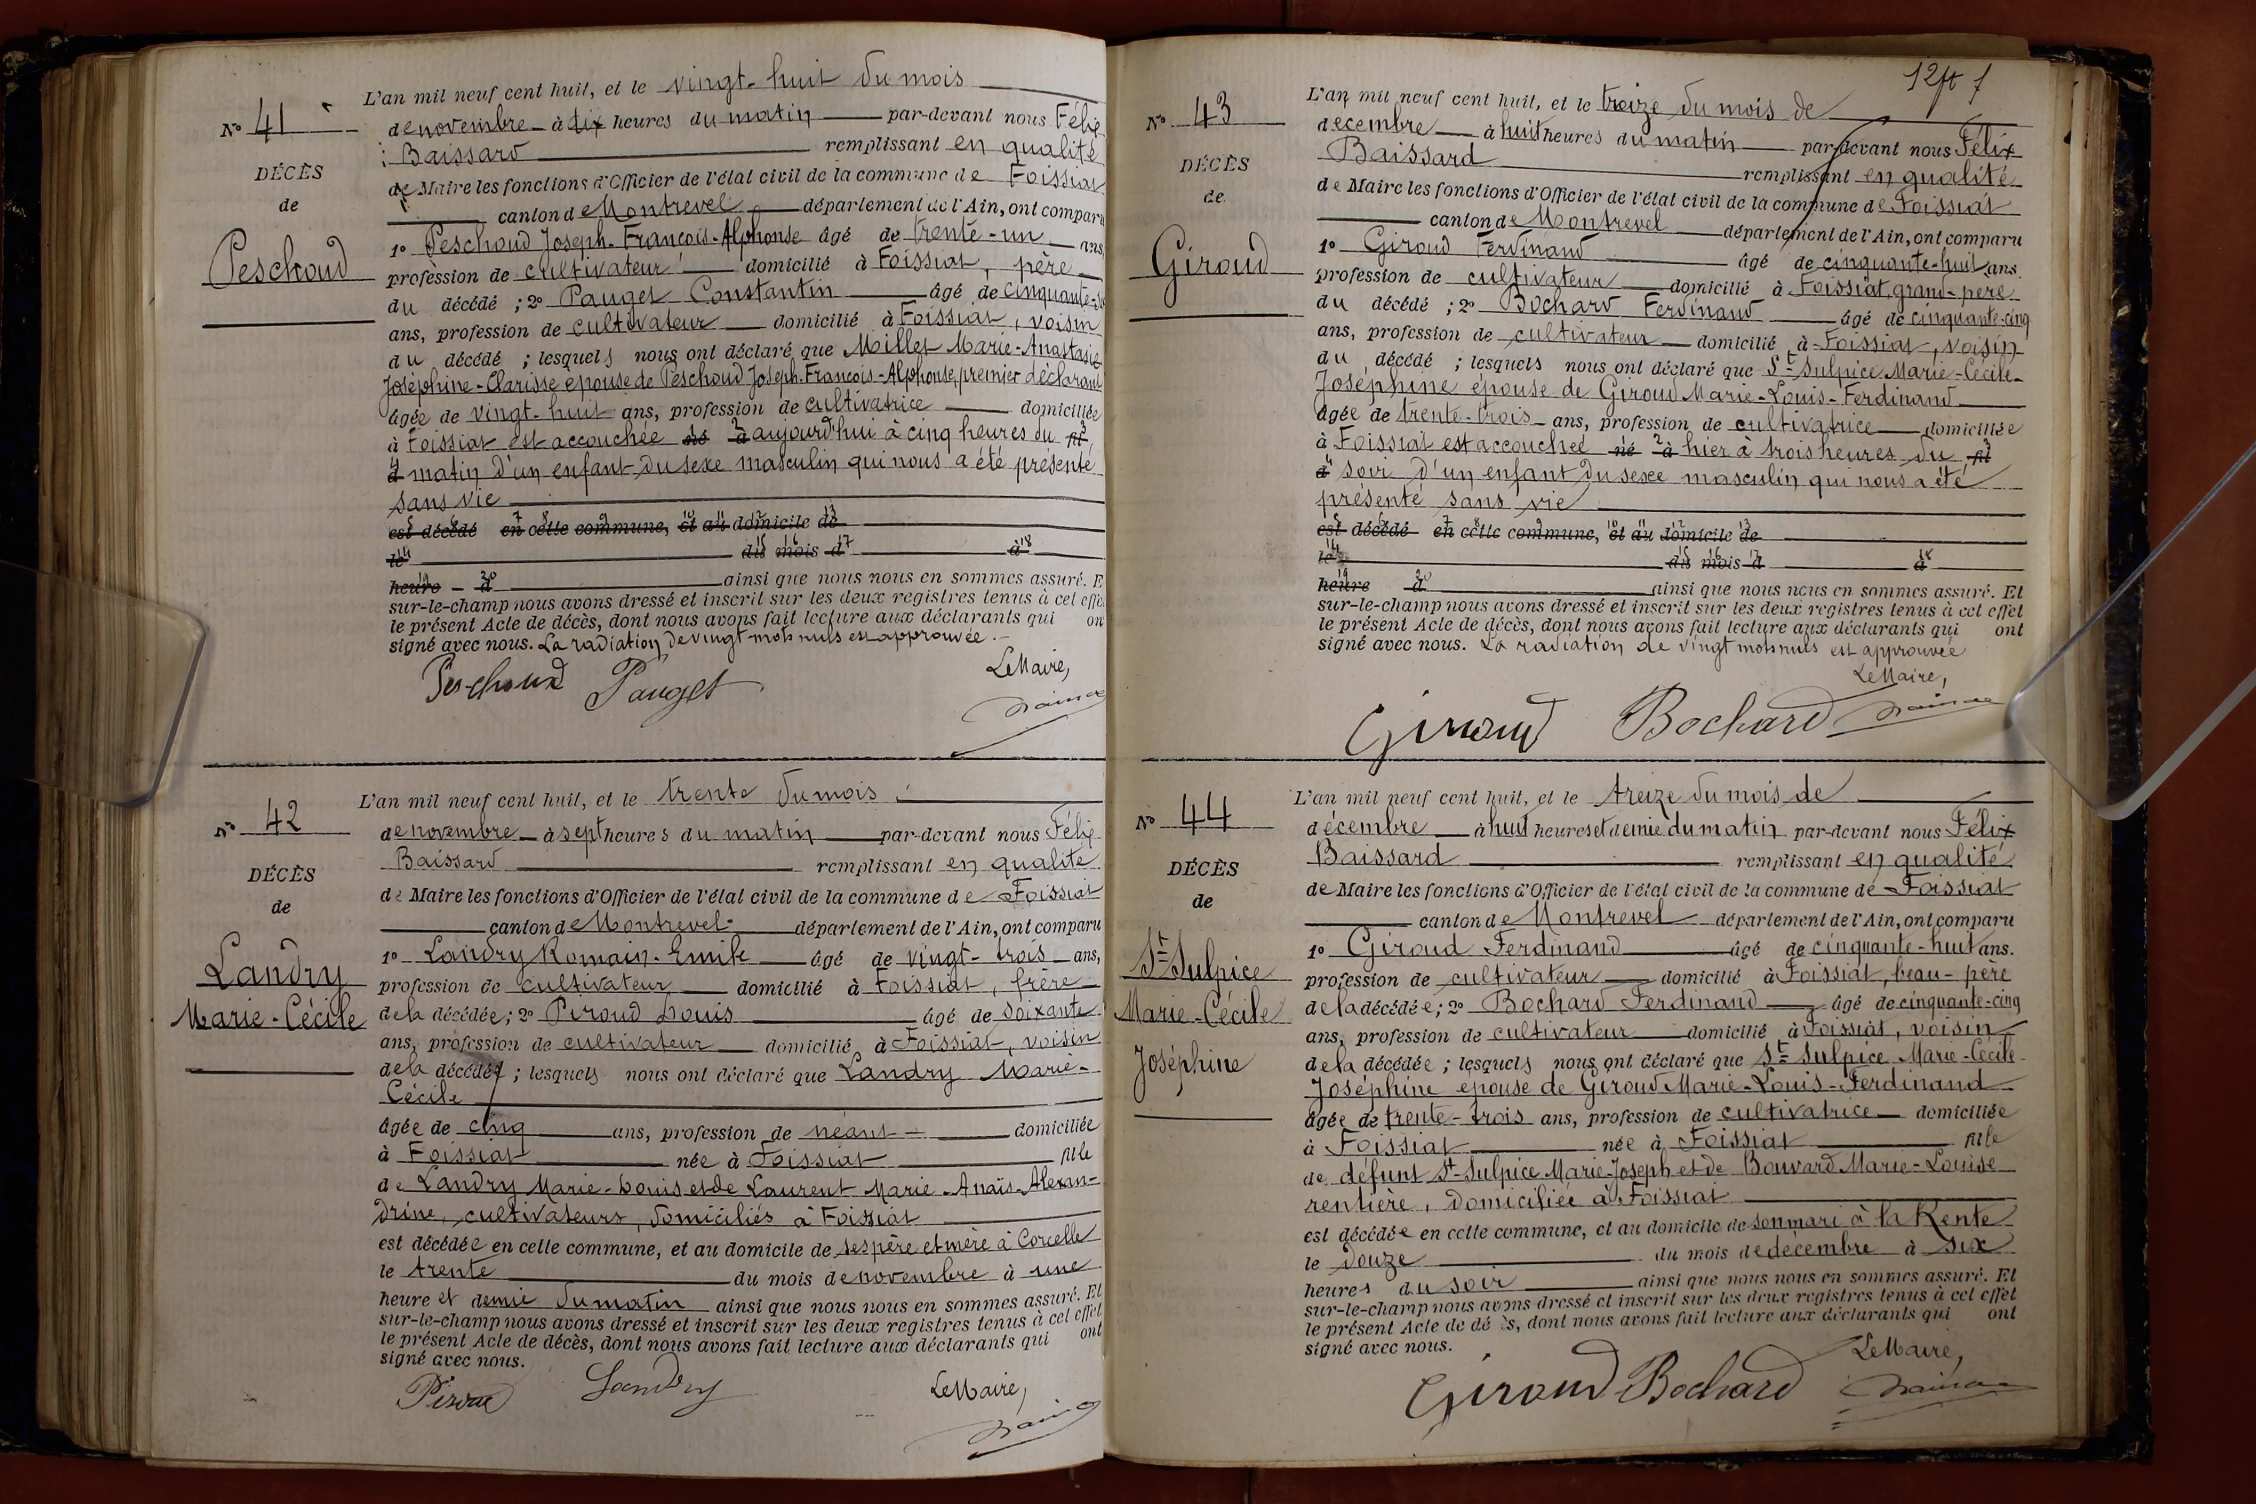 L'an mil neuf cent huit, et le vingt-huit du mois
No 41
de novembre à dix heures du matin par-devant nous Félix
Baissard remplissant en qualité
DÉCÈS
de Maire les fonctions d'Officier de l'état civil de la commune de Foissiat
de
canton de Montrevel département de l'Ain, ont comparu
Peschoud
1o Peschoud Joseph-François-Alphonse âgé de trente-un ans
profession de cultivateur domicilié à Foissiat, père
du décédé ; 2o Pauget Constantin âgé de cinquante-
ans, profession de cultivateur domicilié à Foissiat, voisin
du décédé ; lesquels nous ont déclaré que Millet Marie-Anastasie
Joséphine-Clarisse épouse de Peschoud Joseph-François-Alphonse, premier déclarant
âgée de vingt-huit ans, profession de cultivatrice domiciliée
à Foissiat est accouchée né 2 à aujourd'hui à cinq heures du 3 fil
4 d matin d'un enfant du sexe masculin qui nous a été présenté
sans vie
5 est 6 décédé 7 en 8 cette 9 commune, 10 et 11 au 12 domicile 13 de
14 le 15 du 16 mois 17 d 18 à
19 heure 20 d ainsi que nous nous en sommes assuré. E
sur-le-champ nous avons dressé et inscrit sur les deux registres tenus à cet effe
le présent Acte de décès, dont nous avons fait lecture aux déclarants qui on
signé avec nous. La radiation de vingt mots nuls est approuvée.
Le Maire,
Peschoud Pauget
L'an mil neuf cent huit, et le trente du mois
No 42
de novembre à sept heures du matin par-devant nous Félix
Baissard remplissant en qualité
DÉCÈS
de Maire les fonctions d'Officier de l'état civil de la commune de Foissiat
de
canton de Montrevel département de l'Ain, ont comparu
Landry
Marie-Cécile
1o Landry Romain-Emile âgé de vingt-trois ans,
profession de cultivateur domicilié à Foissiat, frère
de la décédée ; 2o Piroud Louis âgé de soixante
ans, profession de cultivateur domicilié à Foissiat, voisin
de la décédée ; lesquels nous ont déclaré que Landry Marie-
Cécile
âgée de cinq ans, profession de néant domiciliée
à Foissiat née à Foissiat fille
de Landry Marie-Louis et de Laurent Marie-Anaïs-Alexan-
drine, cultivateurs, domiciliés à Foissiat
est décédée en cette commune, et au domicile de ses père et mère à Corcelle
le trente du mois de novembre à une
heure et demie du matin ainsi que nous nous en sommes assuré. Et
sur-le-champ nous avons dressé et inscrit sur les deux registres tenus à cet effet
le présent Acte de décès, dont nous avons fait lecture aux déclarants qui ont
signé avec nous.
Le Maire,
Piroud Landry
12 ft f
L'an mil neuf cent huit, et le treize du mois de
No 43
decembre à huit heures du matin par-devant nous Félix
Baissard remplissant en qualité
DÉCÈS
de Maire les fonctions d'Officier de l'état civil de la commune de Foissiat
de
canton de Montrevel département de l'Ain, ont comparu
Giroud
1o Giroud Ferdinand âgé de cinquante-huit ans
profession de cultivateur domicilié à Foissiat, grand-père
du décédé ; 2o Bochard Ferdinand âgé de cinquante-cinq
ans, profession de cultivateur domicilié à Foissiat, voisin
du décédé ; lesquels nous ont déclaré que St Sulpice Marie-Cécile-
Joséphine épouse de Giroud Marie-Louis-Ferdinand
âgée de trente-trois ans, profession de cultivatrice domiciliée
à Foissiat est accouchée né 2 à hier à trois heures du 3 fil
4 d soir d'un enfant du sexe masculin qui nous a été
présenté sans vie
5 est 6 décédé 7 en 8 cette 9 commune, 10 et 11 au 12 domicile 13 de
14 le 15 du 16 mois 17 d 18 à
19 heure 20 d ainsi que nous nous en sommes assuré. Et
sur-le-champ nous avons dressé et inscrit sur les deux registres tenus à cet effet
le présent Acte de décès, dont nous avons fait lecture aux déclarants qui ont
signé avec nous. La radiation de vingt mots nuls est approuvée
Le Maire,
Giroud Bochard
L'an mil neuf cent huit, et le treize du mois de
No 44
décembre à huit heures et demie du matin par-devant nous Félix
Baissard remplissant en qualité
DÉCÈS
de Maire les fonctions d'Officier de l'état civil de la commune de Foissiat
de
canton de Montrevel département de l'Ain, ont comparu
St Sulpice
Marie-Cécile
Joséphine
1o Giroud Ferdinand âgé de cinquante-huit ans.
profession de cultivateur domicilié à Foissiat, beau-père
de la décédée ; 2o Bochard Ferdinand âgé de cinquante-cinq
ans, profession de cultivateur domicilié à Foissiat, voisin
de la décédée ; lesquels nous ont déclaré que St Sulpice Marie-Cécile-
Joséphine épouse de Giroud Marie-Louis-Ferdinand
âgée de trente-trois ans, profession de cultivatrice domiciliée
à Foissiat née à Foissiat fille
de défunt St-Sulpice Marie-Joseph et de Bouvard Marie-Louise
rentière, domiciliée à Foissiat
est décédée en cette commune, et au domicile de son mari à la Rente
le douze du mois de décembre à six
heures du soir ainsi que nous nous en sommes assuré. Et
sur-le-champ nous avons dressé et inscrit sur les deux registres tenus à cet effet
le présent Acte de décès, dont nous avons fait lecture aux déclarants qui ont
signé avec nous.
Le Maire,
Giroud Bochard